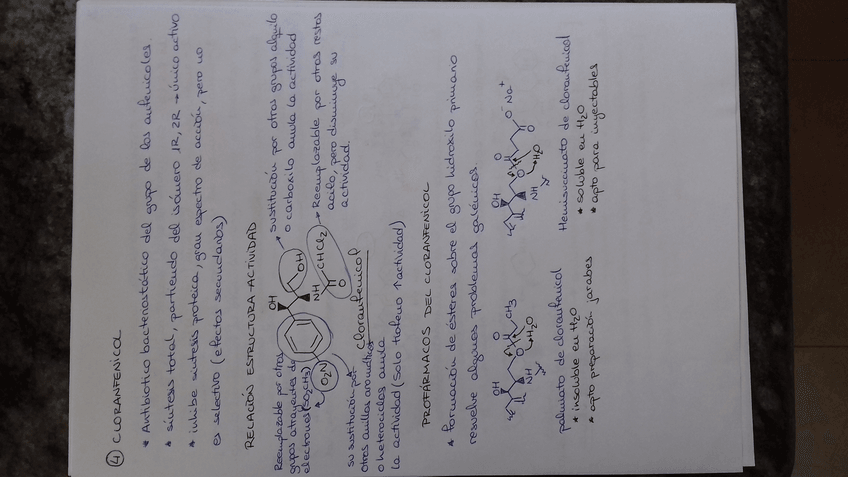 ④ CLORANFENICOL
* Antibiótico bacteriostático del grupo de los anfenicoles.
* síntesis total, partiendo del isómero 1R, 2R → único activo
* inhibe síntesis proteica, gran espectro de acción, pero no
es selectivo (efectos secundarios)
RELACIÓN ESTRUCTURA-ACTIVIDAD
Reemplazable por otros
grupos atrayentes de
electrones (SO2CH3)
sustitución por otros grupos alquilo
o carboxilo anula la actividad
Reemplazable por otros restos
acilo, pero disminuye su
actividad.
OH
OH
NH
CHCl2
O
O2N
cloranfenicol
su sustitución por
otros anillos aromáticos
o heterociclos anula
la actividad (solo tiofeno ↑actividad)
PROFÁRMACOS DEL CLORANFENICOL
* Formación de ésteres sobre el grupo hidroxilo primario
resuelve algunos problemas galénicos.
OH
O
O
CH3
NH
H2O
OH
O
O
O- Na+
O
NH
H2O
palmitato de cloranfenicol
* insoluble en H2O
* apto preparación jarabes
Hemisuccinato de cloranfenicol
* soluble en H2O
* apto para inyectables